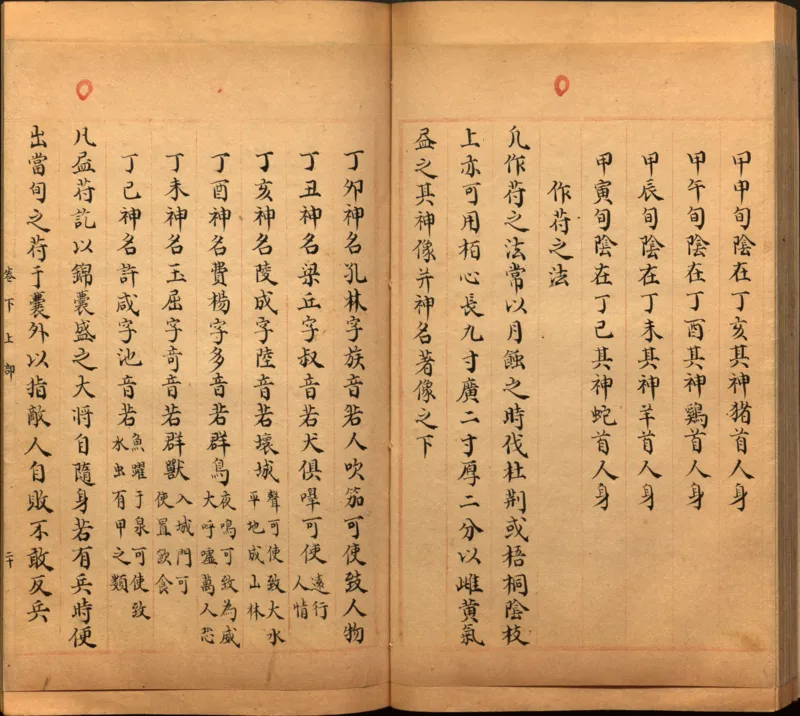 甲申旬陰在丁亥其神猪首人身
甲午旬陰在丁酉其神鷄首人身
甲辰旬陰在丁未其神羊首人身
甲寅旬陰在丁巳其神蛇首人身
作苻之法
凡作苻之法常以月蝕之時伐杜荆或梧桐陰枝
上亦可用栢心長九寸廣二寸厚二分以雌黄氣
㿽之其神像并神名著像之下
丁夘神名孔林字族音若人吹笳可使致人物
丁丑神名梁丘字叔音若犬俱嘷可使遠行人情
丁亥神名陵成字陸音若壞城聲可使致大水平地成山林
丁酉神名費楊字多音若群鳥夜鳴可致為威大呼嘘萬人恐
丁未神名王屈字奇音若群獸入城門可使置飲食
丁巳神名許咸字池音若魚躍于泉可使致水虫有甲之類
凡㿽苻訖以錦囊盛之大将自隨身若有兵時便
出當旬之苻于囊外以指敵人自敗不敢反兵
卷下上部
二十